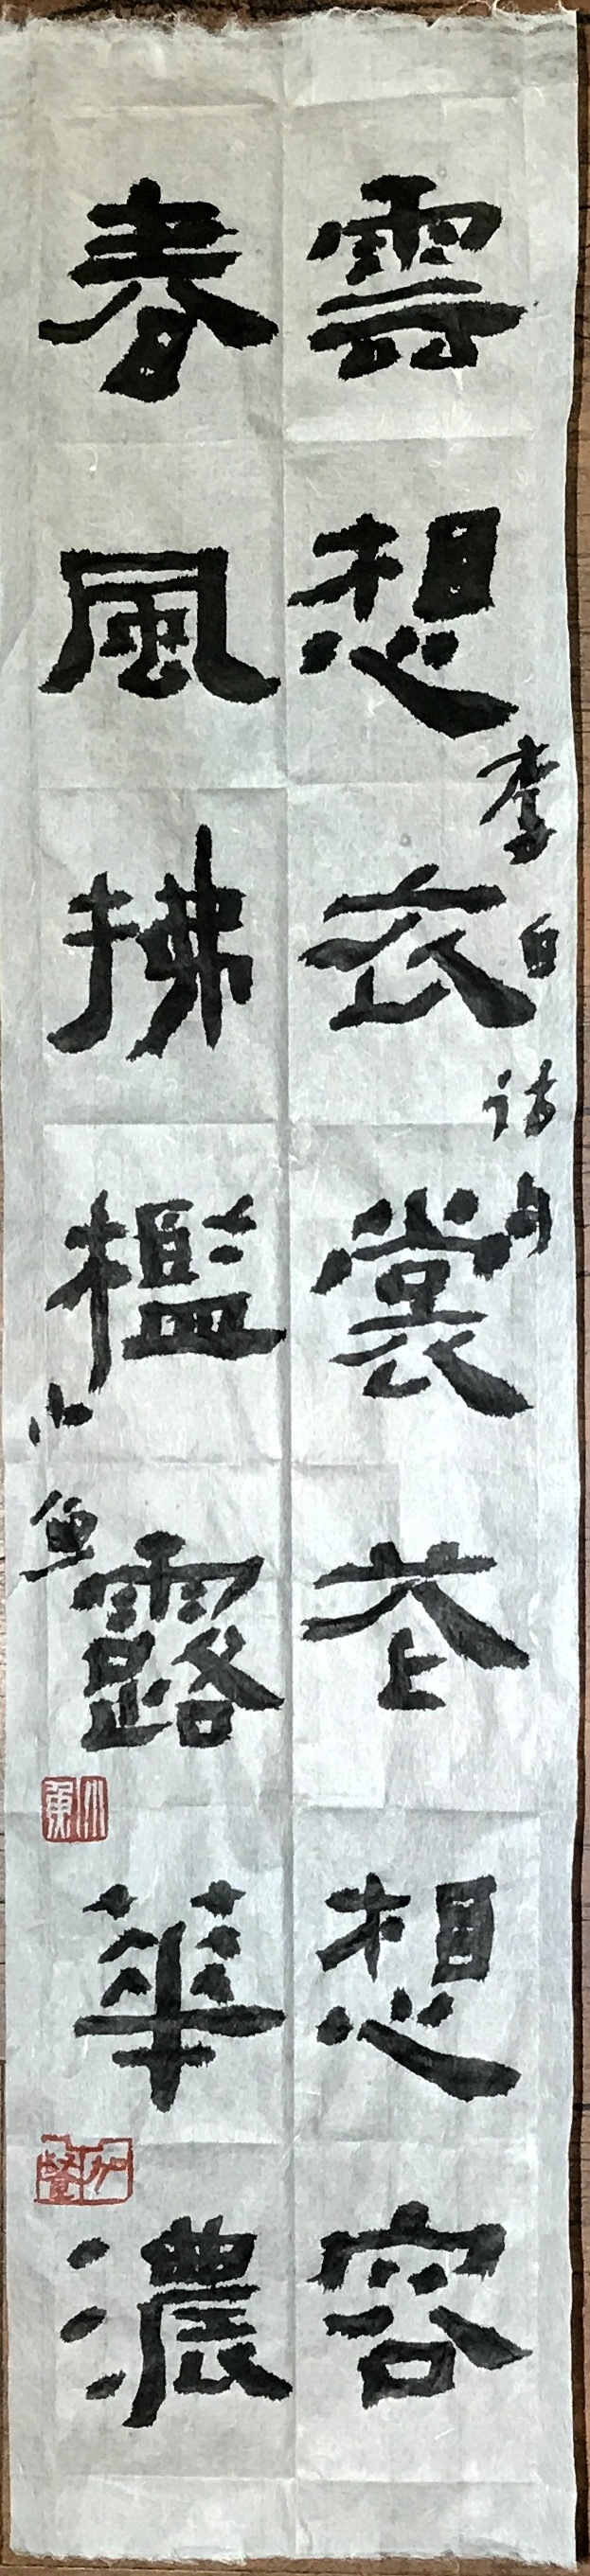 雲想衣裳花想容
李白诗句
春風拂檻露華濃
小魚
小魚